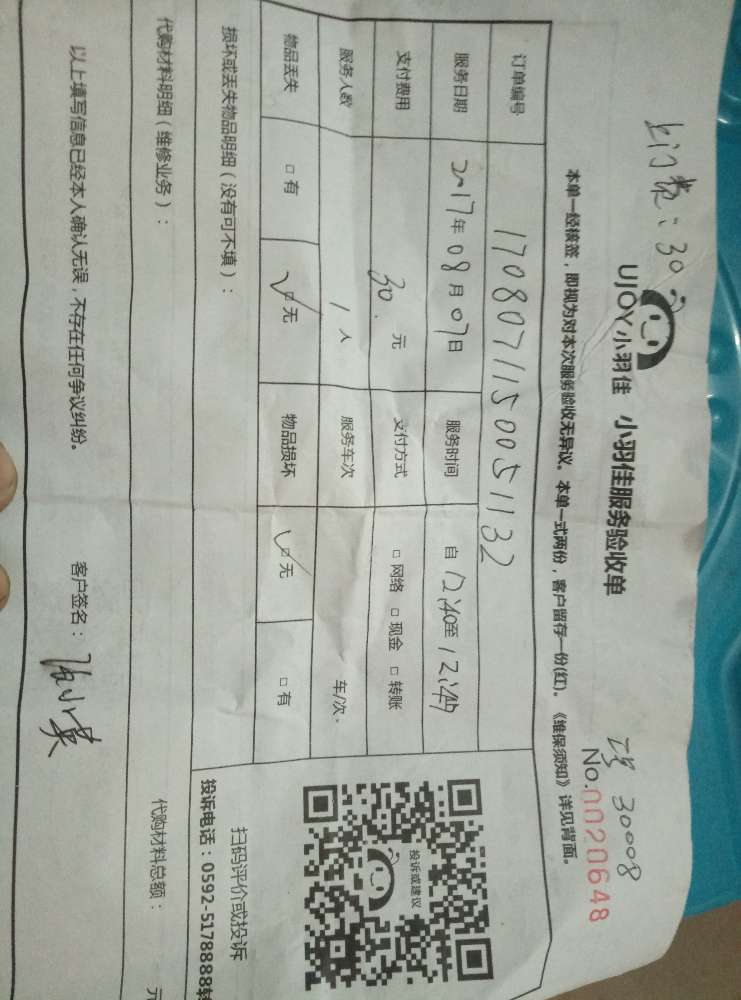 上门费：30
工号 30008
UJOY小羽佳 小羽佳服务验收单
No.0020648
本单一经核签，即视为对本次服务验收无异议。本单一式两份，客户留存一份(红)。《维保须知》详见背面。
订单编号 170807115005 1132
服务日期 2017年08月07日 服务时间 自12:40至12:49
支付费用 30. 元 支付方式 □网络 □现金 □转账
服务人数 1人 服务车次 车/次.
物品丢失 □有 ☑无 物品损坏 ☑无 □有
损坏或丢失物品明细（没有可不填）：
投诉或建议
扫码评价或投诉
投诉电话：0592-5178888转
代购材料明细（维修业务）：
代购材料总额： 元
以上填写信息已经本人确认无误，不存在任何争议纠纷。 客户签名：